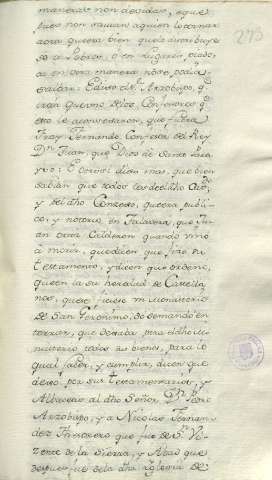 273
manera lo non devidaſ, e que
pues non savian a quien lo tornar
aora que era bien que lo distribuyese
a Pobres, ò en lugares piado
en otra manera no se podia
salvar: E dixo el Arzobispo, q.e
eran quexosos de los Confesores q.e
esto le aconsejaron, que fuera
Fray Fernando Confesor del Rey
D.n Juan, que Dios dé Santo Para
yso: E otrosi dixo mas, que bien
sabian que todos los del dho Cav.o
y del dho Conzejo, que era publi
co y notorio en Talavera, que Ju
an Ortiz Calderon quando vino
à morir, que dicen que fizo su
testamento, y dicen que ordenó,
que en la su heredad de Castella
nos, que se ficiese un Monasterio
de San Geronimo, do demando en
terrar, que dexaba para el dho Mo
nasterio todos sus bienes, para lo
qual facer, y cumplir, dicen que
dexo por sus testamentarios, y
Albaceas al dho Señor D.n Pedro
Arzobispo, y a Nicolas Fernan
dez Thesorero que fue de S.n Vi
zente de la Sierra, y Abad que
despues fue de la dha Iglesia de